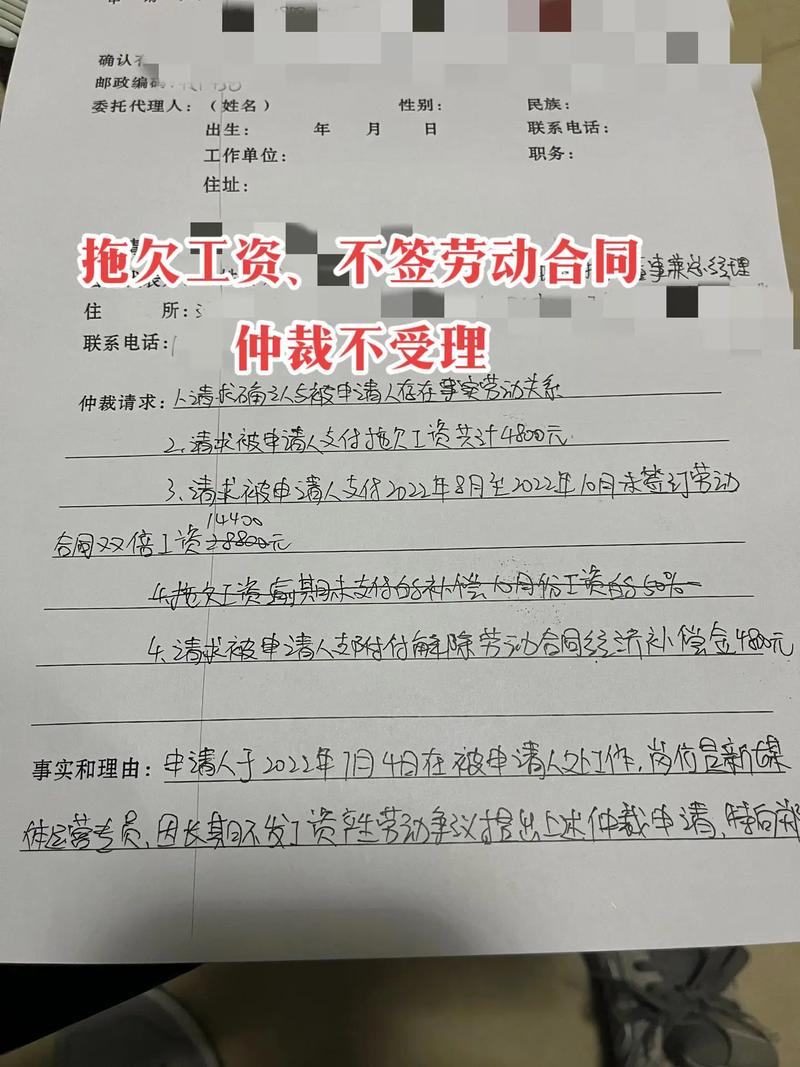 申 请
确认
邮政编码:
委托代理人：（姓名） 性别: 民族:
出生: 年 月 日 联系电话:
工作单位: 职务:
住址:
拖欠工资、不签劳动合同
事兼总经理
住 所:
仲裁不受理
联系电话:
仲裁请求: 1.请求确认与被申请人存在事实劳动关系
2.请求被申请人支付拖欠工资共计4800元
3.请求被申请人支付2022年8月至2022年10月未签订劳动
14400
合同双倍工资28800元
4.拖欠工资逾期未支付的补偿10月份工资的50%
4.请求被申请人支付解除劳动合同经济补偿金4800元
事实和理由: 申请人于2022年7月4日在被申请人处工作,岗位是新媒
体运营专员,因长期不发工资产生劳动争议提出上述仲裁申请,特向郑